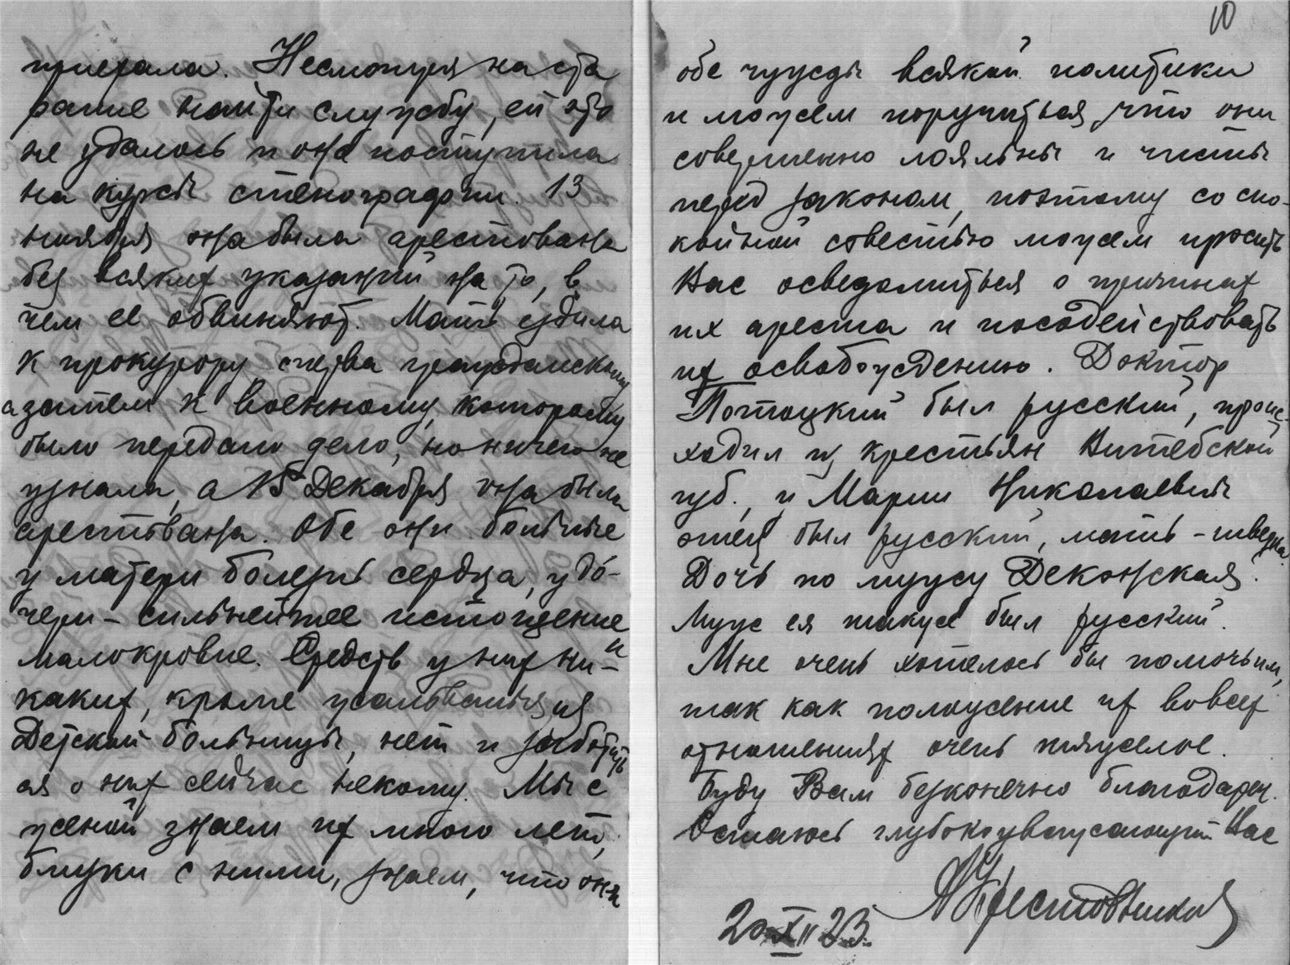 приехала. Несмотря на ста
рание найти службу, ей это
не удалось и она поступила
на курсы стенографии. 13
ноября она была арестована
без всяких указаний на то, в
чем ее обвиняют. Мать ездила
к прокурору сперва гражданскому
а затем к военному, которому
было передано дело, но ничего не
узнала, а 15 Декабря она была
арестована. Обе они больные
у матери болезнь сердца, у до-
чери – сильнейшее истощение и
малокровие. Средств у них ни-
каких, кроме жалованья из
Детской больницы, нет и заботить
ся о них сейчас некому. Мы с
женой знаем их много лет,
близки с ними, знаем, что они
10
обе чужды всякой политики
и можем поручиться, что они
совершенно лояльны и чисты
перед законом, поэтому со спо-
койной совестью можем просить
Вас осведомиться о причинах
их ареста и посодействовать
их освобождению. Доктор
Потоцкий был русский, проис-
ходил из крестьян Витебской
губ., и Марии Николаевны
отец был русский, мать – шведка.
Дочь по мужу Деконская.
Муж ея также был русский.
Мне очень хотелось бы помочь им,
так как положение их во всех
отношениях очень тяжелое.
Буду Вам безконечно благодарен.
Остаюсь глубокоуважающий Вас
А Крестовников
20 XII 23.